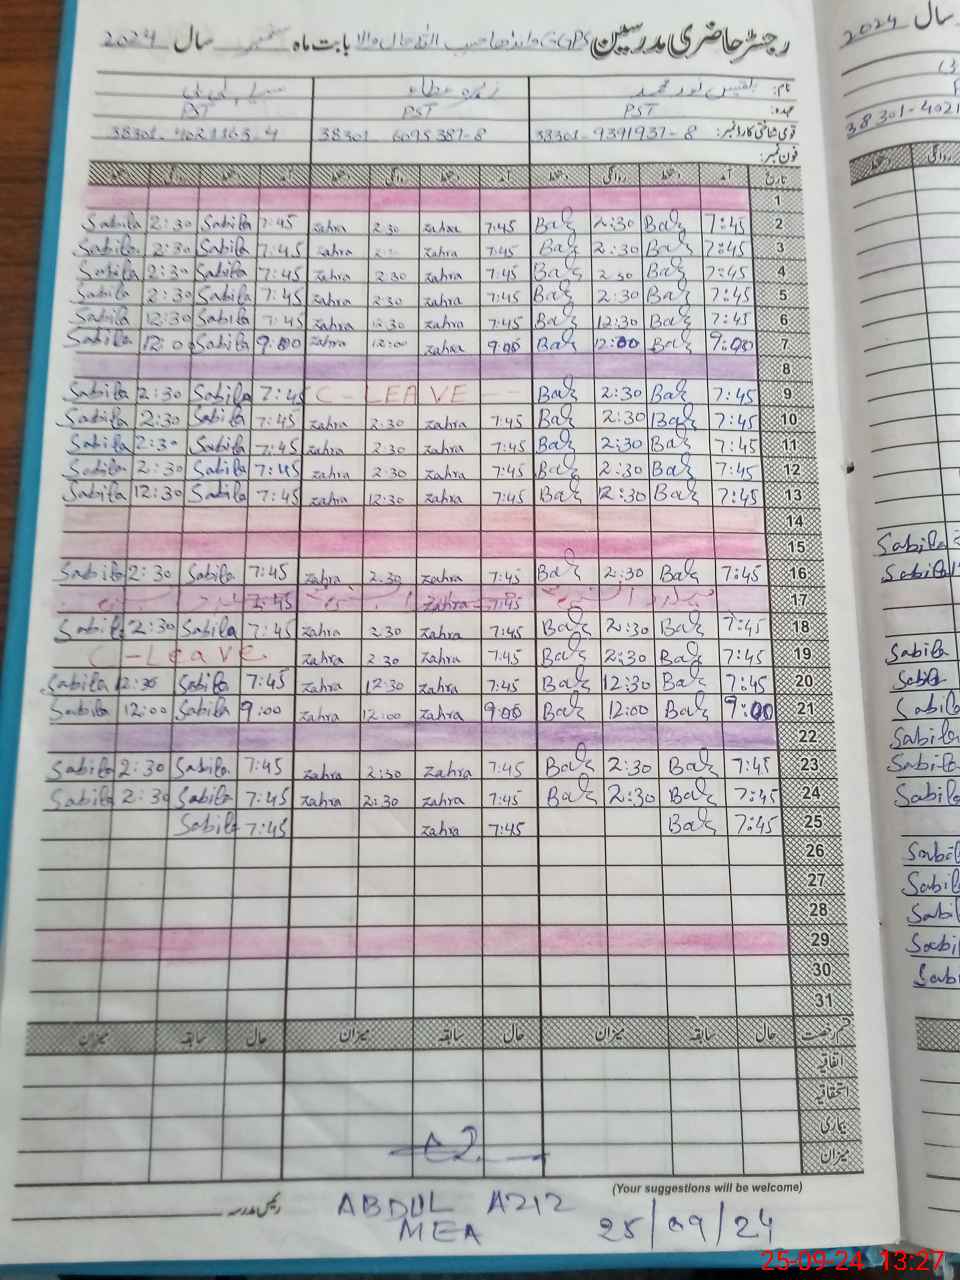 رجسٹر حاضری مدرسین GGPS بابت ماہ ستمبر سال 2024
نام: بلقیس نور محمد
عہدہ: PST PST PST
قومی شناختی کارڈ نمبر: 38301-9391937-8 38301 6095387-8 38301-4021163-4
فون نمبر:
تاریخ آمد دستخط روانگی دستخط آمد دستخط روانگی دستخط آمد دستخط روانگی دستخط
1
Sabila 2:30 Sabila 7:45 zahra 2:30 zahra 7:45 2:30 7:45 2
Sabila 2:30 Sabila 7:45 zahra zahra 7:45 2:30 7:45 3
Sabila 2:30 Sabila 7:45 zahra 2:30 zahra 7:45 2:30 7:45 4
Sabila 2:30 Sabila 7:45 zahra 2:30 zahra 7:45 2:30 7:45 5
Sabila 12:30 Sabila 7:45 zahra 12:30 zahra 7:45 12:30 7:45 6
Sabila 12:00 Sabila 9:00 zahra 12:00 zahra 9:00 12:00 9:00 7
8
Sabila 2:30 Sabila 7:45 C-LEAVE 2:30 7:45 9
Sabila 2:30 Sabila 7:45 zahra 2:30 zahra 7:45 2:30 7:45 10
Sabila 2:30 Sabila 7:45 zahra 2:30 zahra 7:45 2:30 7:45 11
Sabila 2:30 Sabila 7:45 zahra 2:30 zahra 7:45 2:30 7:45 12
Sabila 12:30 Sabila 7:45 zahra 12:30 zahra 7:45 12:30 7:45 13
14
15
Sabila 2:30 Sabila 7:45 zahra 2:30 zahra 7:45 2:30 7:45 16
7:45 zahra 7:45 17
Sabila 2:30 Sabila 7:45 zahra 2:30 zahra 7:45 2:30 7:45 18
C-Leave zahra 2:30 zahra 7:45 2:30 7:45 19
Sabila 12:30 Sabila 7:45 zahra 12:30 zahra 7:45 12:30 7:45 20
Sabila 12:00 Sabila 9:00 zahra 12:00 zahra 9:00 12:00 9:00 21
22
Sabila 2:30 Sabila 7:45 zahra 2:30 zahra 7:45 2:30 7:45 23
Sabila 2:30 Sabila 7:45 zahra 2:30 zahra 7:45 2:30 7:45 24
Sabila 7:45 zahra 7:45 7:45 25
26
27
28
29
30
31
قسم رخصت حال سابقہ میزان حال سابقہ میزان حال سابقہ میزان
اتفاقیہ
استحقاقیہ
بیماری
میزان
(Your suggestions will be welcome)
رئیس مدرسہ
ABDUL AZIZ
MEA
25/09/24
25-09-24 13:27
سال 2024
38301-4021
روانگی
Sabila
Sabila
Sabila
Sabila
Sabila
Sabila
Sabila
Sabila
Sabila
Sabila
Sabila
Sabila
Sabila